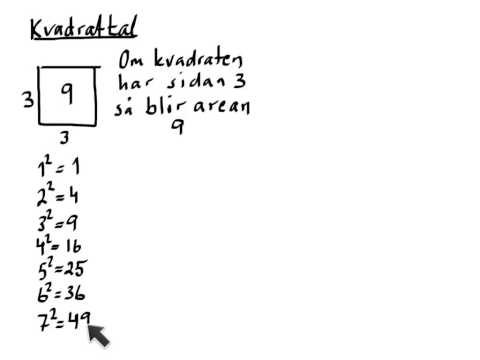 Kvadrattal
Om kvadraten
har sidan 3
så blir arean
9
9
3
3
1² = 1
2² = 4
3² = 9
4² = 16
5² = 25
6² = 36
7² = 49